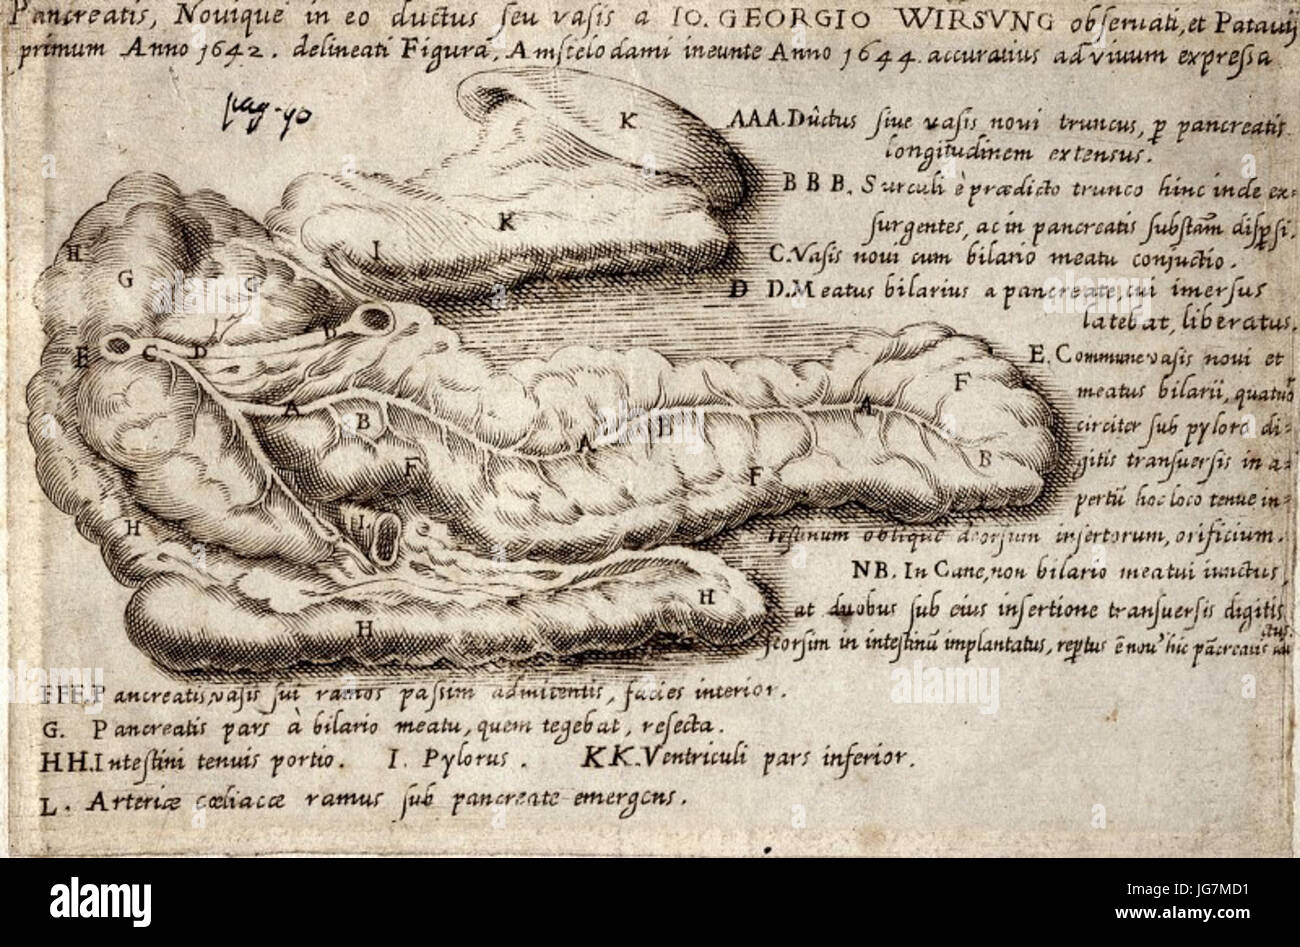 Pancreatis, Novique in eo ductus seu vasis a IO. GEORGIO WIRSVNG observati, et Patavij
primum Anno 1642. delineati Figura, Amstelodami ineunte Anno 1644. accuratius ad vivum expressa
pag. 90
AAA. Ductus sive vasis novi truncus, p pancreatis
longitudinem extensus.
BBB. Surculi è prædicto trunco hinc inde ex-
surgentes, ac in pancreatis substam dispsi.
C. Vasis novi cum bilario meatu conjuctio.
D D. Meatus bilarius a pancreate, cui imersus
latebat, liberatus.
E. Commune vasis novi et
meatus bilarii, quatuor
circiter sub pyloro di-
gitis transversis in a-
pertū hoc loco tenue in-
testinum oblique deorsum insertorum, orificium.
NB. In Cane, non bilario meatui iunctus,
at duobus sub eius insertione transversis digitis
seorsim in intestinū implantatus, reptus ē novus hic pācreatis
FFF. Pancreatis, vasis sui ramos passim admitentis, facies interior.
G. Pancreatis pars à bilario meatu, quem tegebat, resecta.
HH. Intestini tenuis portio. I. Pylorus. KK. Ventriculi pars inferior.
L. Arteriæ cœliacæ ramus sub pancreate emergens.
K
K
I
H
G
G
D
E
C
D
A
B
A
B
A
F
B
F
F
L
H
H
H
alamy
Image ID: JG7MD1
www.alamy.com